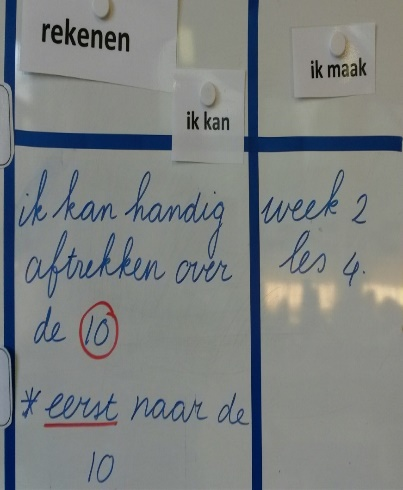 rekenen
ik kan
ik maak
ik kan handig
aftrekken over
de 10
* eerst naar de
10
week 2
les 4.